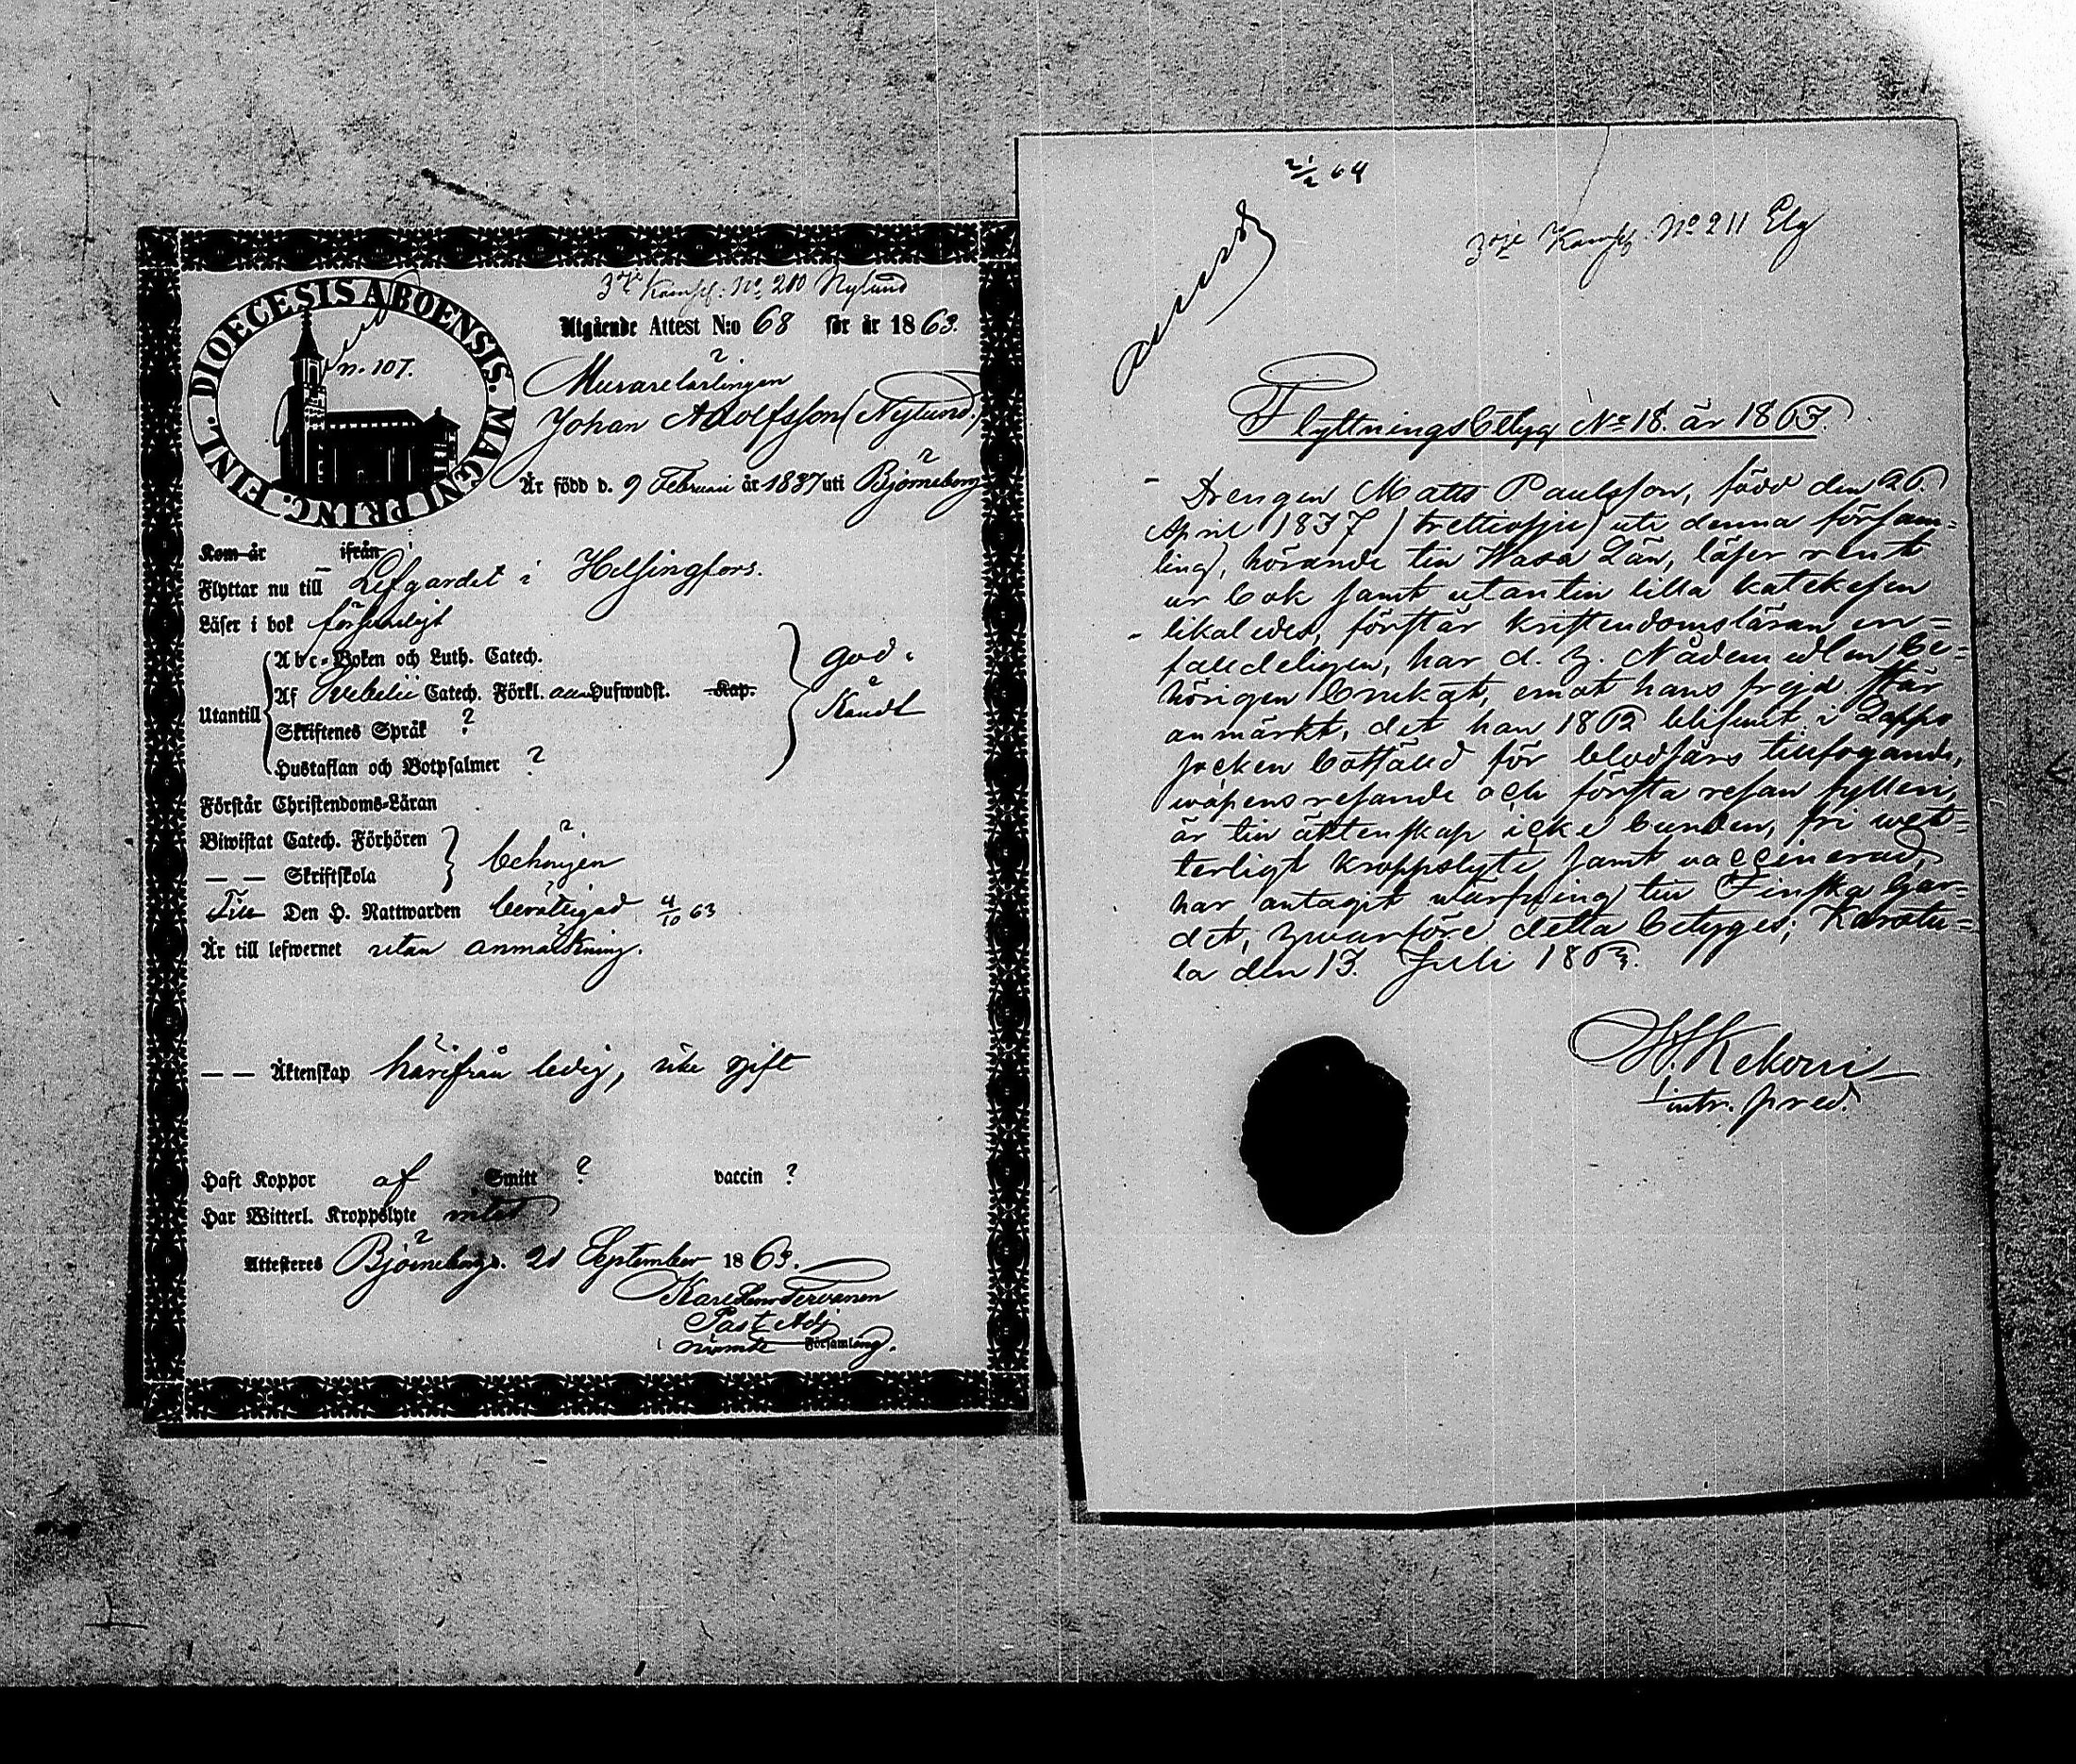 3dje Kompf: No 210 Nylund
DIOECESIS ABOENSIS. MAGNI PRINC. FINL.
n. 107.
Utgående Attest N:o 68 för år 1863.
Murarelärlingen
Johan Adolfsson (Nylund.)
Är född d. 9 Februari år 1837 uti Björneborg
Kom år ifrån
Flyttar nu till Lifgardet i Helsingfors.
Läser i bok försvarligt
Abc-Boken och Luth. Catech.
Af Svebelii Catech. Förkl. Hufwudst. Kap.
Utantill
Skriftenes Språk ?
Hustaflan och Botpsalmer ?
god.
Känd
Förstår Christendoms-Läran
Biwistat Catech. Förhören
— — Skriftskola
behörigen
Till Den H. Nattwarden berättigad 4/10 63
Är till lefwernet utan anmärkning.
— — Äktenskap härifrån ledig, icke gift
Haft Koppor af Smitt ? vaccin ?
Har Witterl. Kroppslyte intet
Attesteres Björneborg d. 21 September 1863.
Karl Tervanen
Past. Adj
i nämnde Församling.
2/2 64
3dje Kompf: No 211 Elg
Flyttningsbetyg No 18. år 1863.
Drengen Matts Paulsson, född den 26.
April 1837 (trettiosju) uti denna försam=
ling, hörande till Wasa Län, läser rent
ur bok samt utantill lilla katekesen
likaledes, förstår kristendomsläran en=
faldeligen, har d. h. Nådemedlen be=
hörigen brukat, emot hans frejd står
anmärkt, det han 1862 blifwit i Lappo
socken bötfälld för blodsårs tillfogande,
wåpens resande och första resan fylleri,
är till äktenskap icke bunden, fri wet=
terligt kroppslyte samt vaccinerad,
har antagit wärfning till Finska Gar=
det, hwarföre detta betyges; Karstu=
la den 13. Juli 1863.
Kekoni
intr. pred.